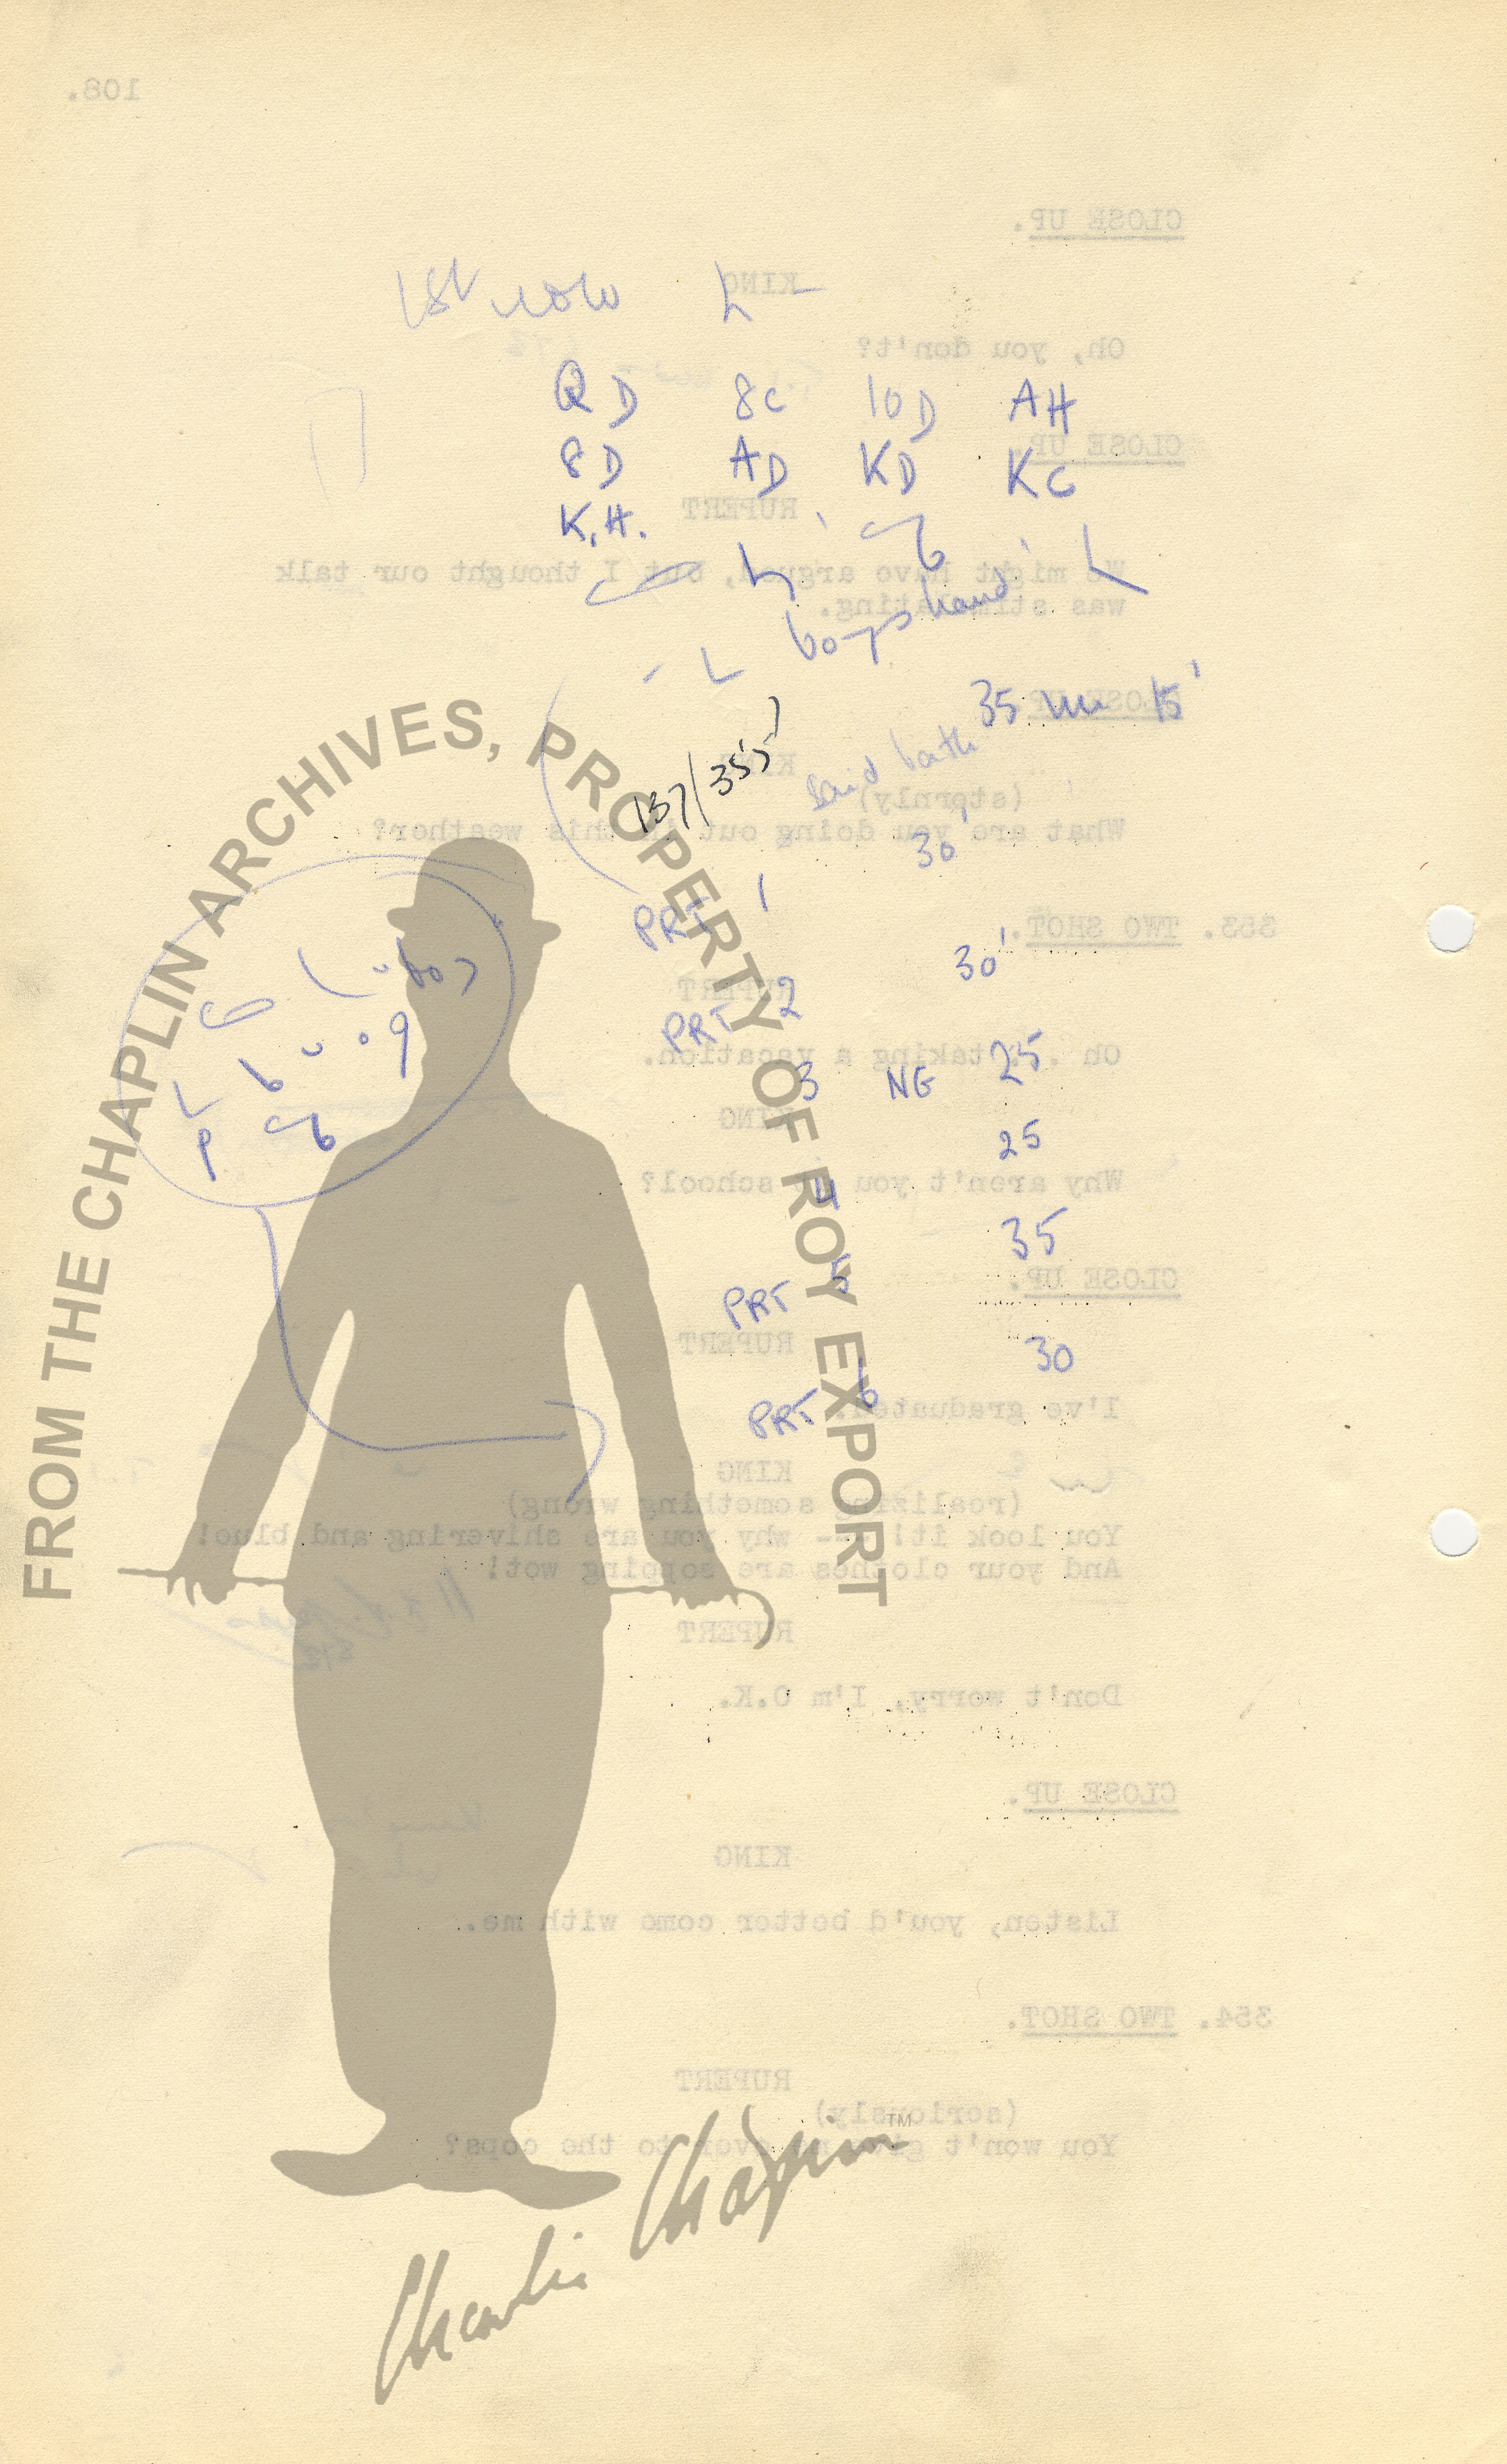 108.
CLOSE UP.
KING
Oh, you don't?
1st row L –
QD 8C 10D AH
8D AD KD KC
K.H.
CLOSE UP.
RUPERT
We might have argued, but I thought our talk
was stimulating.
boys hand
35 15'
CLOSE UP.
KING
137/355
said bath
(sternly)
What are you doing out in this weather?
30'
PRT 1
353. TWO SHOT.
30'
RUPERT
PRT 2
Oh ... taking a vacation.
3 NG 25
KING
25
Why aren't you at school?
4
35
CLOSE UP.
PRT 5
RUPERT
30
PRT 6
I've graduated.
KING
(realizing something wrong)
You look it! -- why you are shivering and blue!
And your clothes are sopping wet!
RUPERT
Don't worry, I'm O.K.
CLOSE UP.
KING
Listen, you'd better come with me.
354. TWO SHOT.
RUPERT
(seriously)
You won't give me over to the cops?
FROM THE CHAPLIN ARCHIVES, PROPERTY OF ROY EXPORT
Charlie Chaplin™